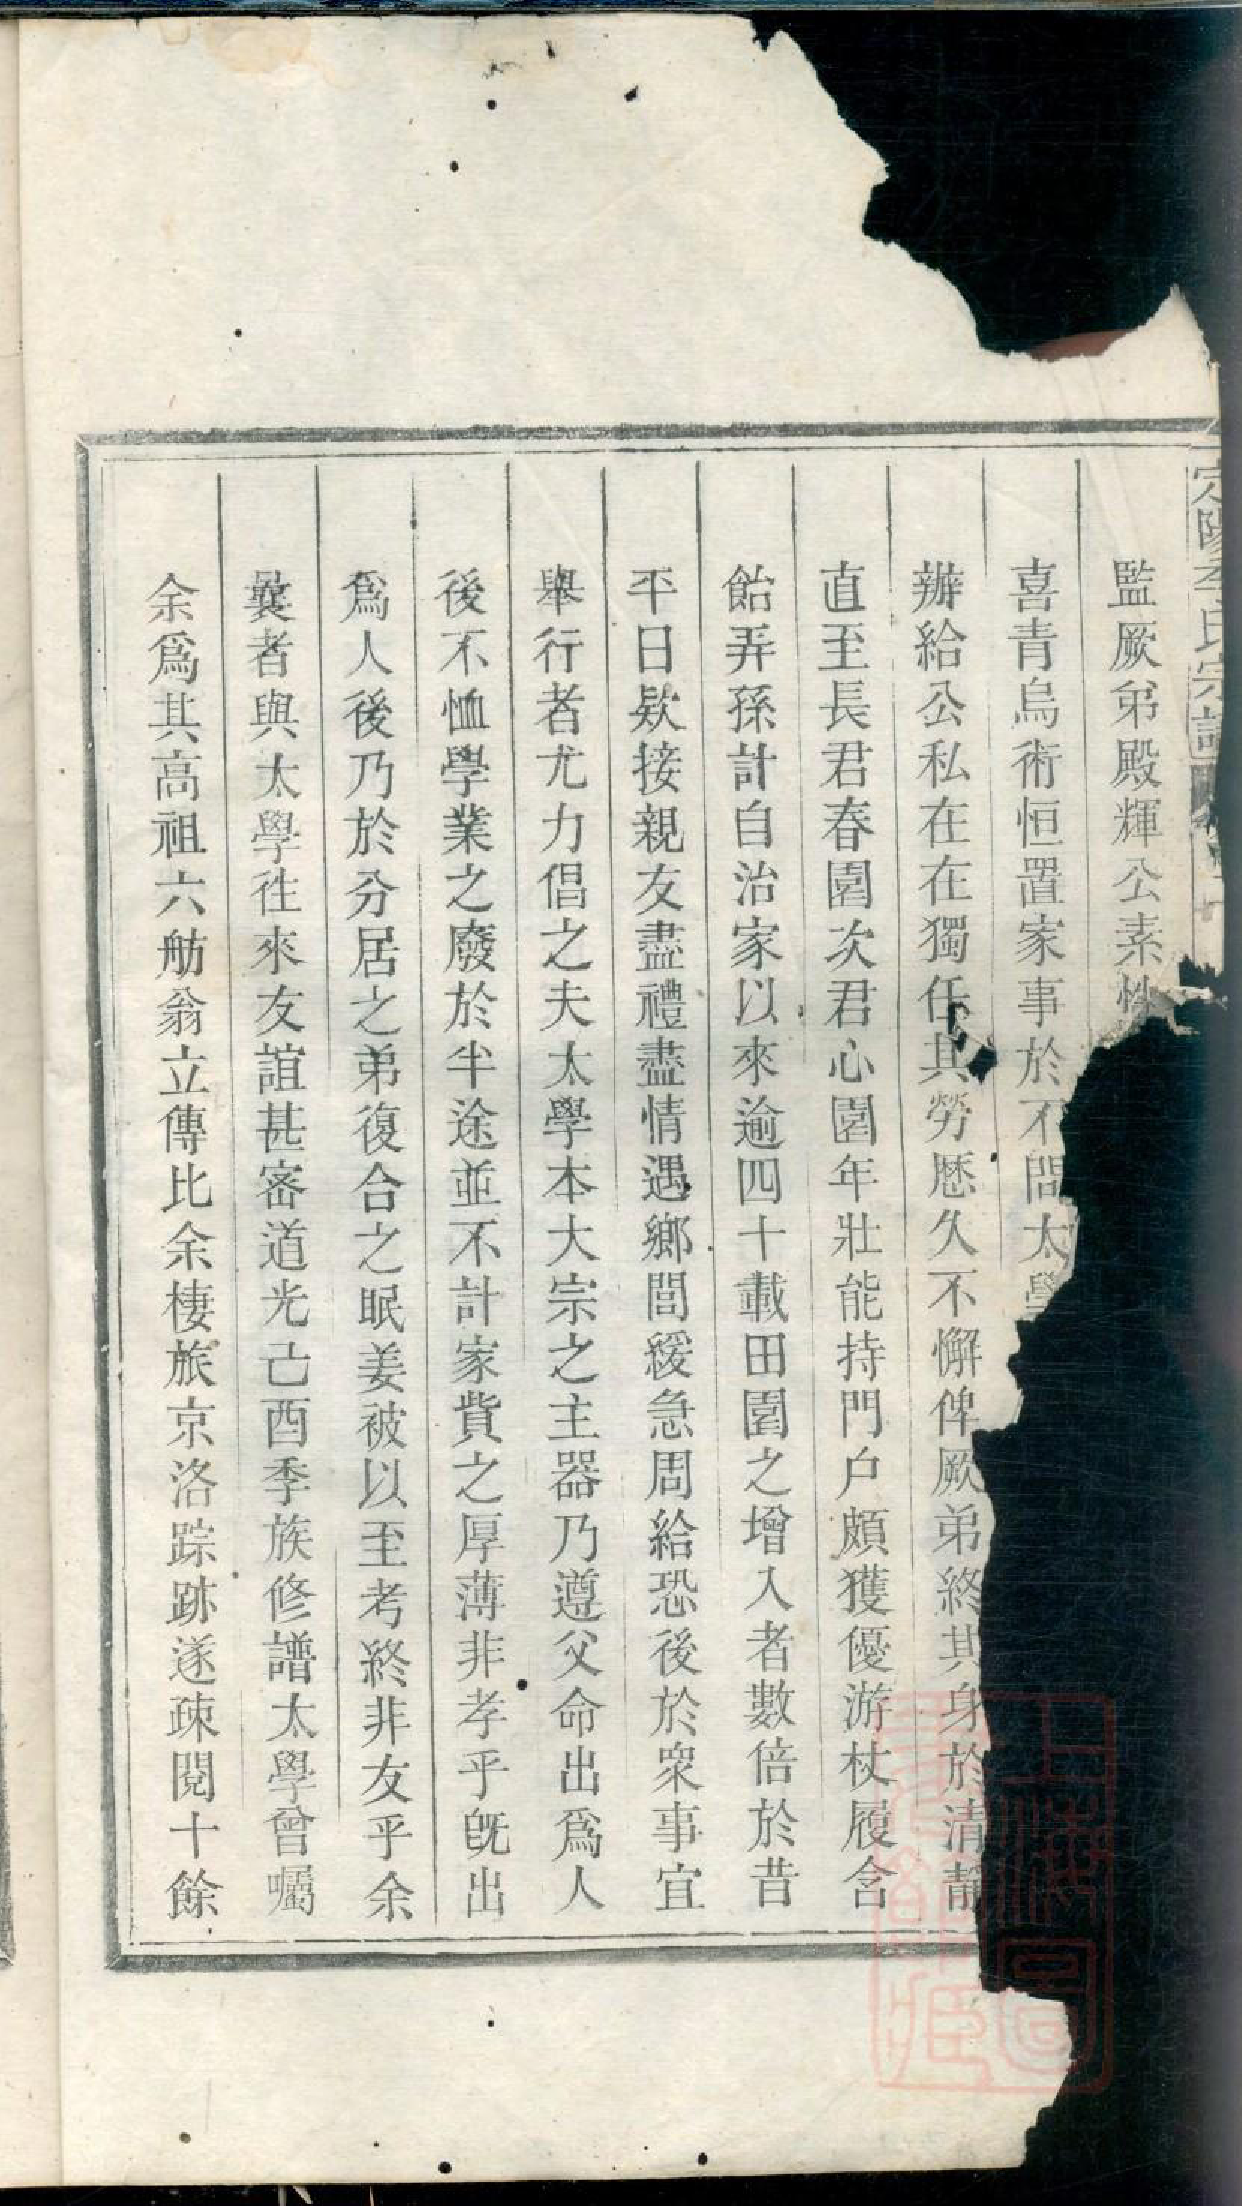 定陽李氏宗譜
監厥弟殿輝公素性
喜青烏術恒置家事於不問太學
辦給公私在在獨任其勞歷久不懈俾厥弟終其身於清靜
直至長君春園次君心園年壯能持門户頗獲優游杖履含
飴弄孫計自治家以來逾四十載田園之增入者數倍於昔
平日欵接親友盡禮盡情遇鄉閭緩急周給恐後於衆事宜
舉行者尤力倡之夫太學本大宗之主器乃遵父命出為人
後不恤學業之廢於半途並不計家貲之厚薄非孝乎旣出
爲人後乃於分居之弟復合之眠姜被以至考終非友乎余
曩者與太學徃來友誼甚密道光己酉季族修譜太學曾囑
余爲其高祖六舫翁立傳比余棲旅京洛踪跡遂疎閱十餘
上海圖書館藏